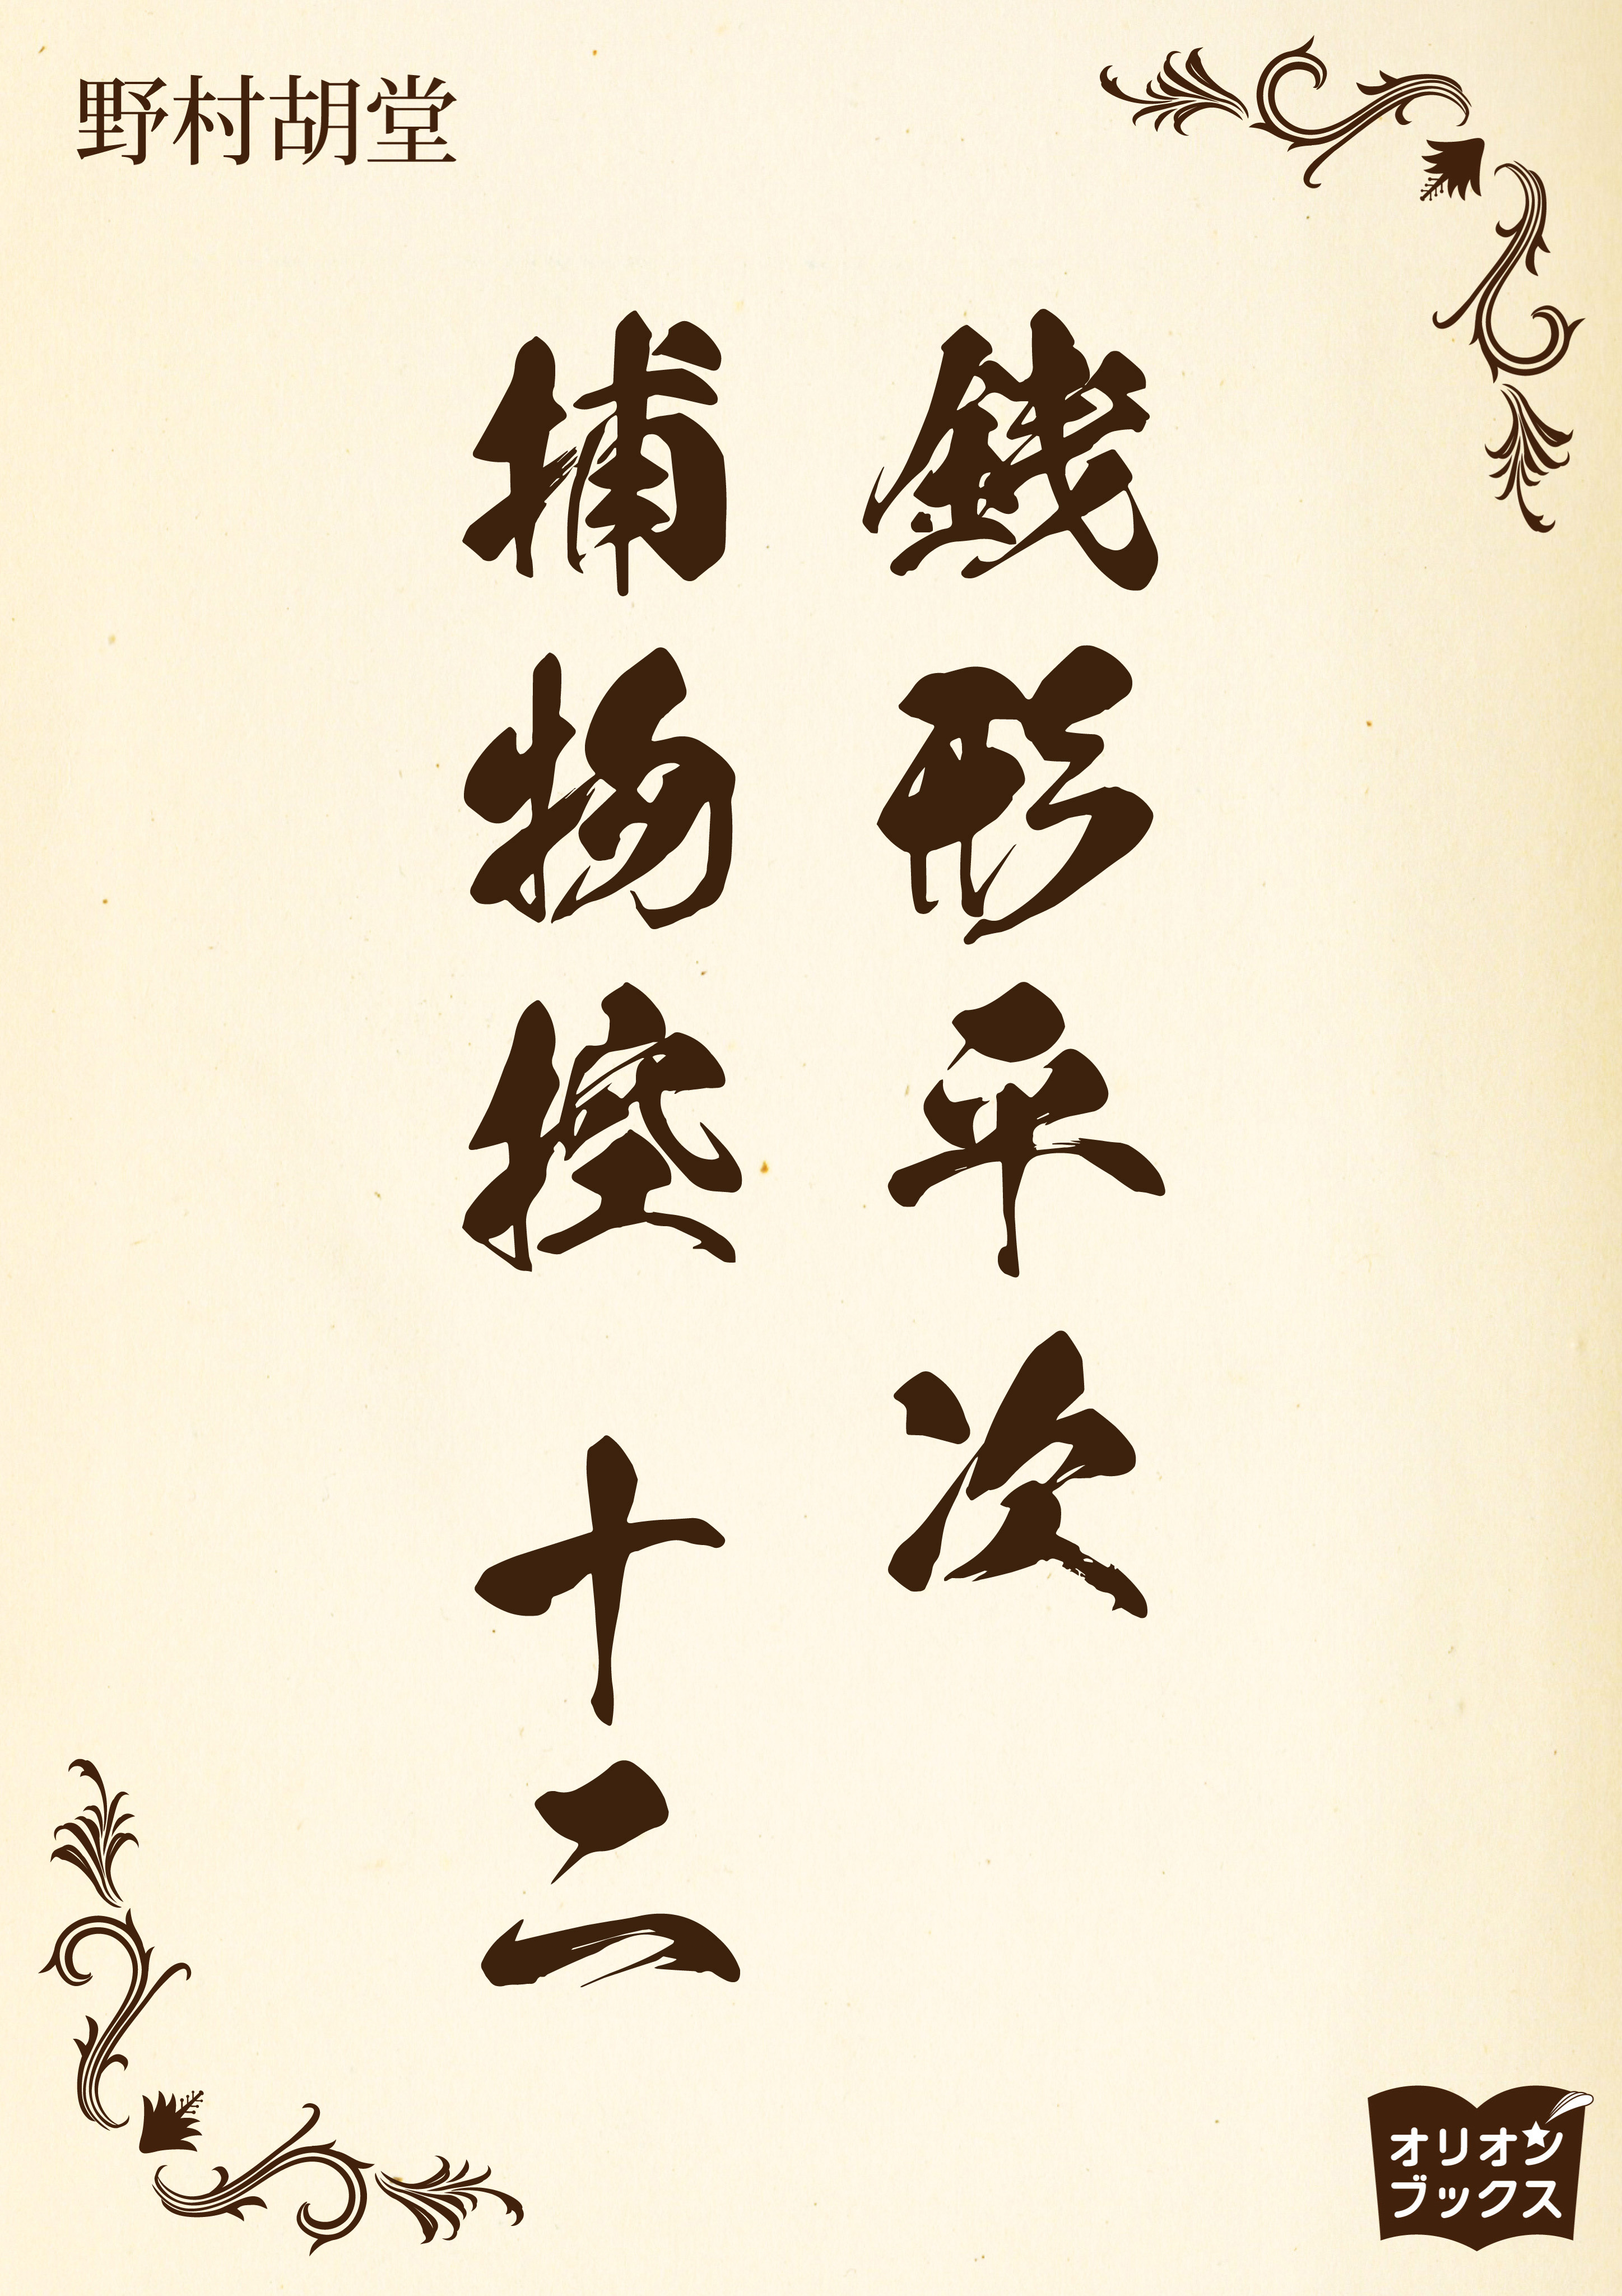 野村胡堂
銭形平次
捕物控 十二
オリオン
ブックス